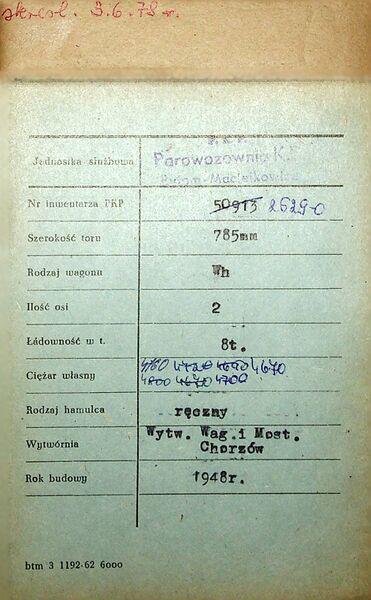 skreśl. 3.6.78 r.
P. K. P.
Jednostka służbowa Parowozownia K.
Bytom-Maciejkowice
Nr inwentarza PKP 50913 2629-0
Szerokość toru 785mm
Rodzaj wagonu Wh
Ilość osi 2
Ładowność w t. 8t.
4720 4690 4670
Ciężar własny
4800 4670 4700
Rodzaj hamulca ręczny
Wytw. Wag.i Most.
Wytwórnia Chorzów
Rok budowy 1948r.
btm 3 1192-62 6000